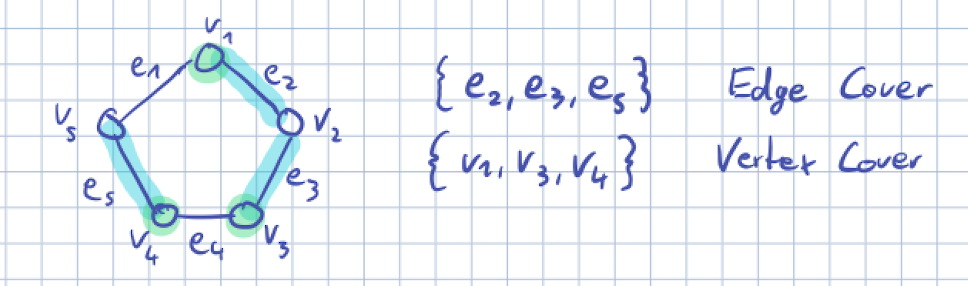 v1
e1
e2
v5
v2
e5
e3
v4
e4
v3
{ e2, e3, e5 } Edge Cover
{ v1, v3, v4 } Vertex Cover